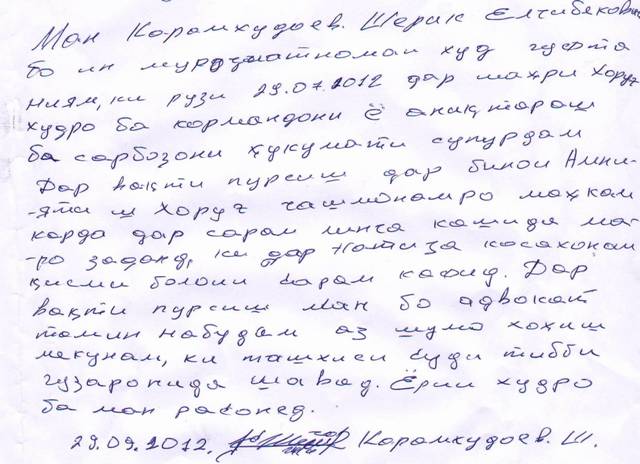 Ман Карамхудоев. Шерик Елчибекович
бо ин муроциатномаи худ гуфта
ниям, ки рузи 29.07.2012 дар шахри Хоруғ
худро ба кормандони ё аниқтараш
ба сарбозони ҳукумати супурдам
Дар вақти пурсиш дар бинои Амни-
-яти ш Хоруғ чашмонамро маҳкам
карда дар сарам кашида ма-
-ро заданд, ки дар натиҷа косахонаи
қисми болони сарам кафид. Дар
вақти пурсиш ман бо адвокат
томин набудам аз шумо хоҳиш
мекунам, ки ташхиси суди тибби
гузаронида шавад. Ёрии худро
ба ман расонед.
29.09.2012. Карамхудоев. Ш.